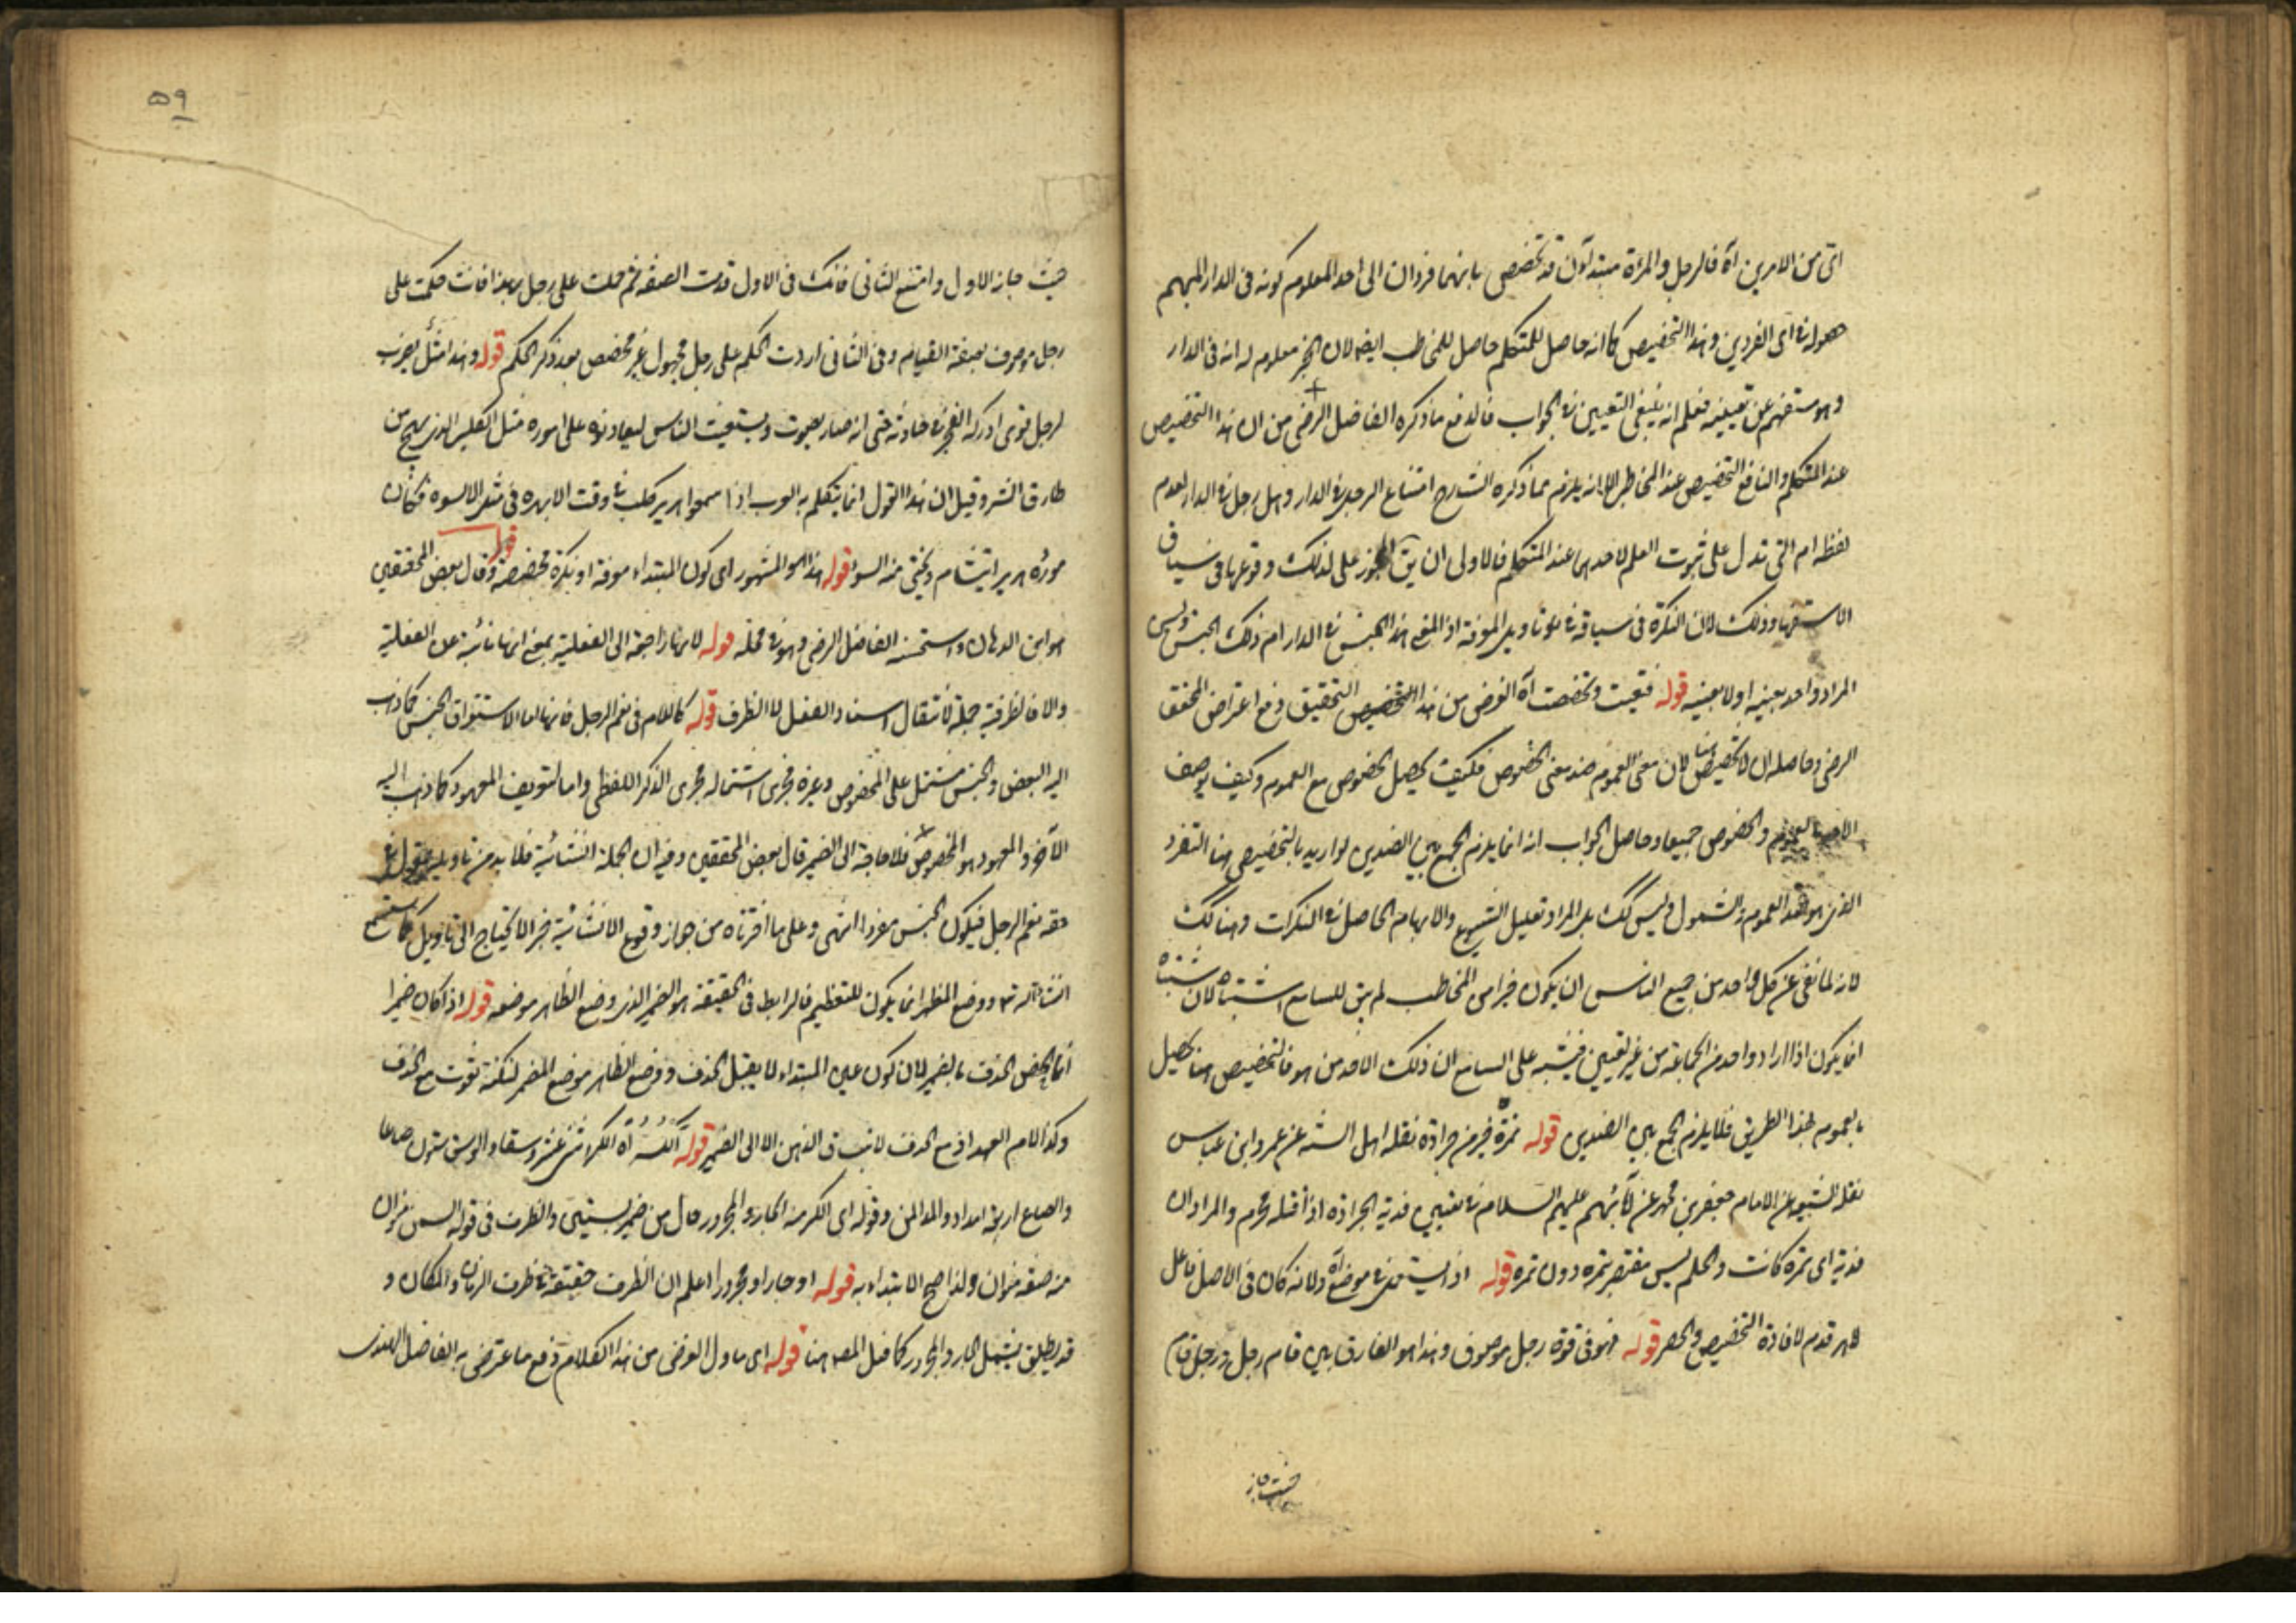 اى من الامرين آه فالرجل والمرأة مبتدآن قد تخصص بانهما فردان الى احد المعلوم كونه فى الدار المبهم
هو انه اى الفردين وهذا التخصيص كما انه حاصل للمتكلم حاصل للمخاطب ايضا لان الخبر معلوم له انه فى الدار
وهو مستفهم عن تعيينه فعلم انه ينبغى التعيين فى الجواب فاندفع ما ذكره الفاضل الرضى من ان هذا التخصيص
عند المتكلم والنافع التخصيص عند المخاطب الا انه يلزم مما ذكره الشارح امتناع ارجل فى الدار وهل رجل فى الدار لعدم
لفظه ام التى تدل على ثبوت العلم لاحدهما عند المتكلم فالاولى ان يق المجوز على لذلك وقوعها فى سياق
الاستفهام وذلك لان النكرة فى سياقه فى تاويل المعرفة اذ المعنى هذا الجنس فى الدار ام ذلك الجنس وليس
المراد واحد بعينه او لا بعينه قوله فتعينت وتخصصت آه الغرض من هذا التخصيص التحقيق دفع اعتراض المحقق
الرضى وحاصله ان لا تخصيص هنا لان معنى العموم ضد معنى الخصوص فكيف يحصل الخصوص مع العموم وكيف يوصف
الامر بالعموم والخصوص جميعا وحاصل الجواب انه انما يلزم الجمع بين الضدين لو اريد بالتخصيص هنا التفرد
الذى هو ضد العموم والشمول وليس كك بل المراد تقليل الشيوع والابهام الحاصل فى النكرات وهنا كك
لانه لما نفى عن كل واحد من جميع الناس ان يكون خيرا من المخاطب لم يبق للسامع اشتباه لان الاشتباه
انما يكون اذا اراد واحد من الجماعة من غير تعيين فيشتبه على السامع ان ذلك الاحد من هو فالتخصيص هنا يحصل
بالعموم فبهذا الطريق فلا يلزم الجمع بين الضدين قوله تمرة خير من جرادة نقله اهل السنة عن عمر وابن عباس
نقله الشيعة عن الامام جعفر بن محمد عن آبائهم عليهم السلام فى تعيين فدية الجرادة اذا قتله محرم والمراد ان
فدية اى تمرة كانت والحكم ليس مقتصر بتمرة دون تمرة قوله اذ يستعمل فى موضع آه ولانه كان فى الاصل فاعل
اهر قدم لافادة التخصيص والحصر قوله فهو فى قوة رجل موصوف وهذا هو الفارق بين قام رجل ورجل قام
حيث جاز
۵۹
حيث جاز الاول وامتنع الثانى فانك فى الاول قدمت الصفة ثم حملت على رجل بهذا فانت حكمت على
رجل موصوف بصفة القيام وفى الثانى اردت الحكم على رجل مجهول غير مخصص بعد ذكر الحكم قوله وهذا مثل يضرب
لرجل قوى ادركه العجز فى حادثة حتى انه صار يصوت ويستغيث الناس ليعاونوه على اموره مثل الكلب الذى يصيح من
طارق الشر وقيل ان هذا القول انما يتكلم به العرب اذا سمعوا هرير كلب فى وقت لا يهره فى مثله الا لسوء فكان
مورده هرير ايتشام ويختى منه السوء قوله هذا هو المشهور اى كون المبتداء معرفة او نكرة مخصصة قوله وقال بعض المحققين
هو ابن الدهان واستحسنه الفاضل الرضى وهو فى محله قوله لانها راجعة الى الفعلية بمعنى انها نائبة عن الفعلية
والا فالظرفية جملة لانتقال اسناد الفعل الى الظرف قوله كاللام فى نعم الرجل فانها اما لاستغراق الجنس كما ذهب
اليه البعض والجنس مشتمل على المخصوص وغيره فجرى اشتماله مجرى الذكر اللفظى واما لتعريف المعهود كما ذهب اليه
الآخر والمعهود هو المخصوص فلا حاجة الى الضمير قال بعض المحققين وفيه ان الجملة انشائية فلا بد من تاويل مقول فى
حقه نعم الرجل فيكون الجنس مفردا انتهى وعلى ما اخترناه من جواز وقوع الانشائية خبرا لا يحتاج الى تاويل كما ستسمع
انشاء الله تع ووضع المظهر انما يكون للتعظيم فالرابط فى الحقيقة هو الضمير الذى وضع الظاهر موضعه قوله اذا كان ضميرا
انما يختص الحذف بالضمير لان كون عين المبتداء لا يقبل الحذف ووضع الظاهر موضع المضمر لنكتة تفوت مع الحذف
وكذا لام العهد اذ مع الحذف لا يتساق الذهن الا الى الضمير قوله الكر آه الكر اثنى عشر وسقا والوسق ستون صاعا
والصاع اربعة امداد والمد المن وقوله اى الكر منه الجار والمجرور حال من ضمير بستين والظرف فى قوله السمن منوان
منه صفة منوان ولذا صح الابتداء به قوله او جارا ومجرورا اعلم ان الظرف حقيقة فى ظرف الزمان والمكان و
قد يطلق يشمل الجار والمجرور كما فعل المصه هنا قوله اى ماول الغرض من هذا الكلام دفع ما عترض به الفاضل الهندى